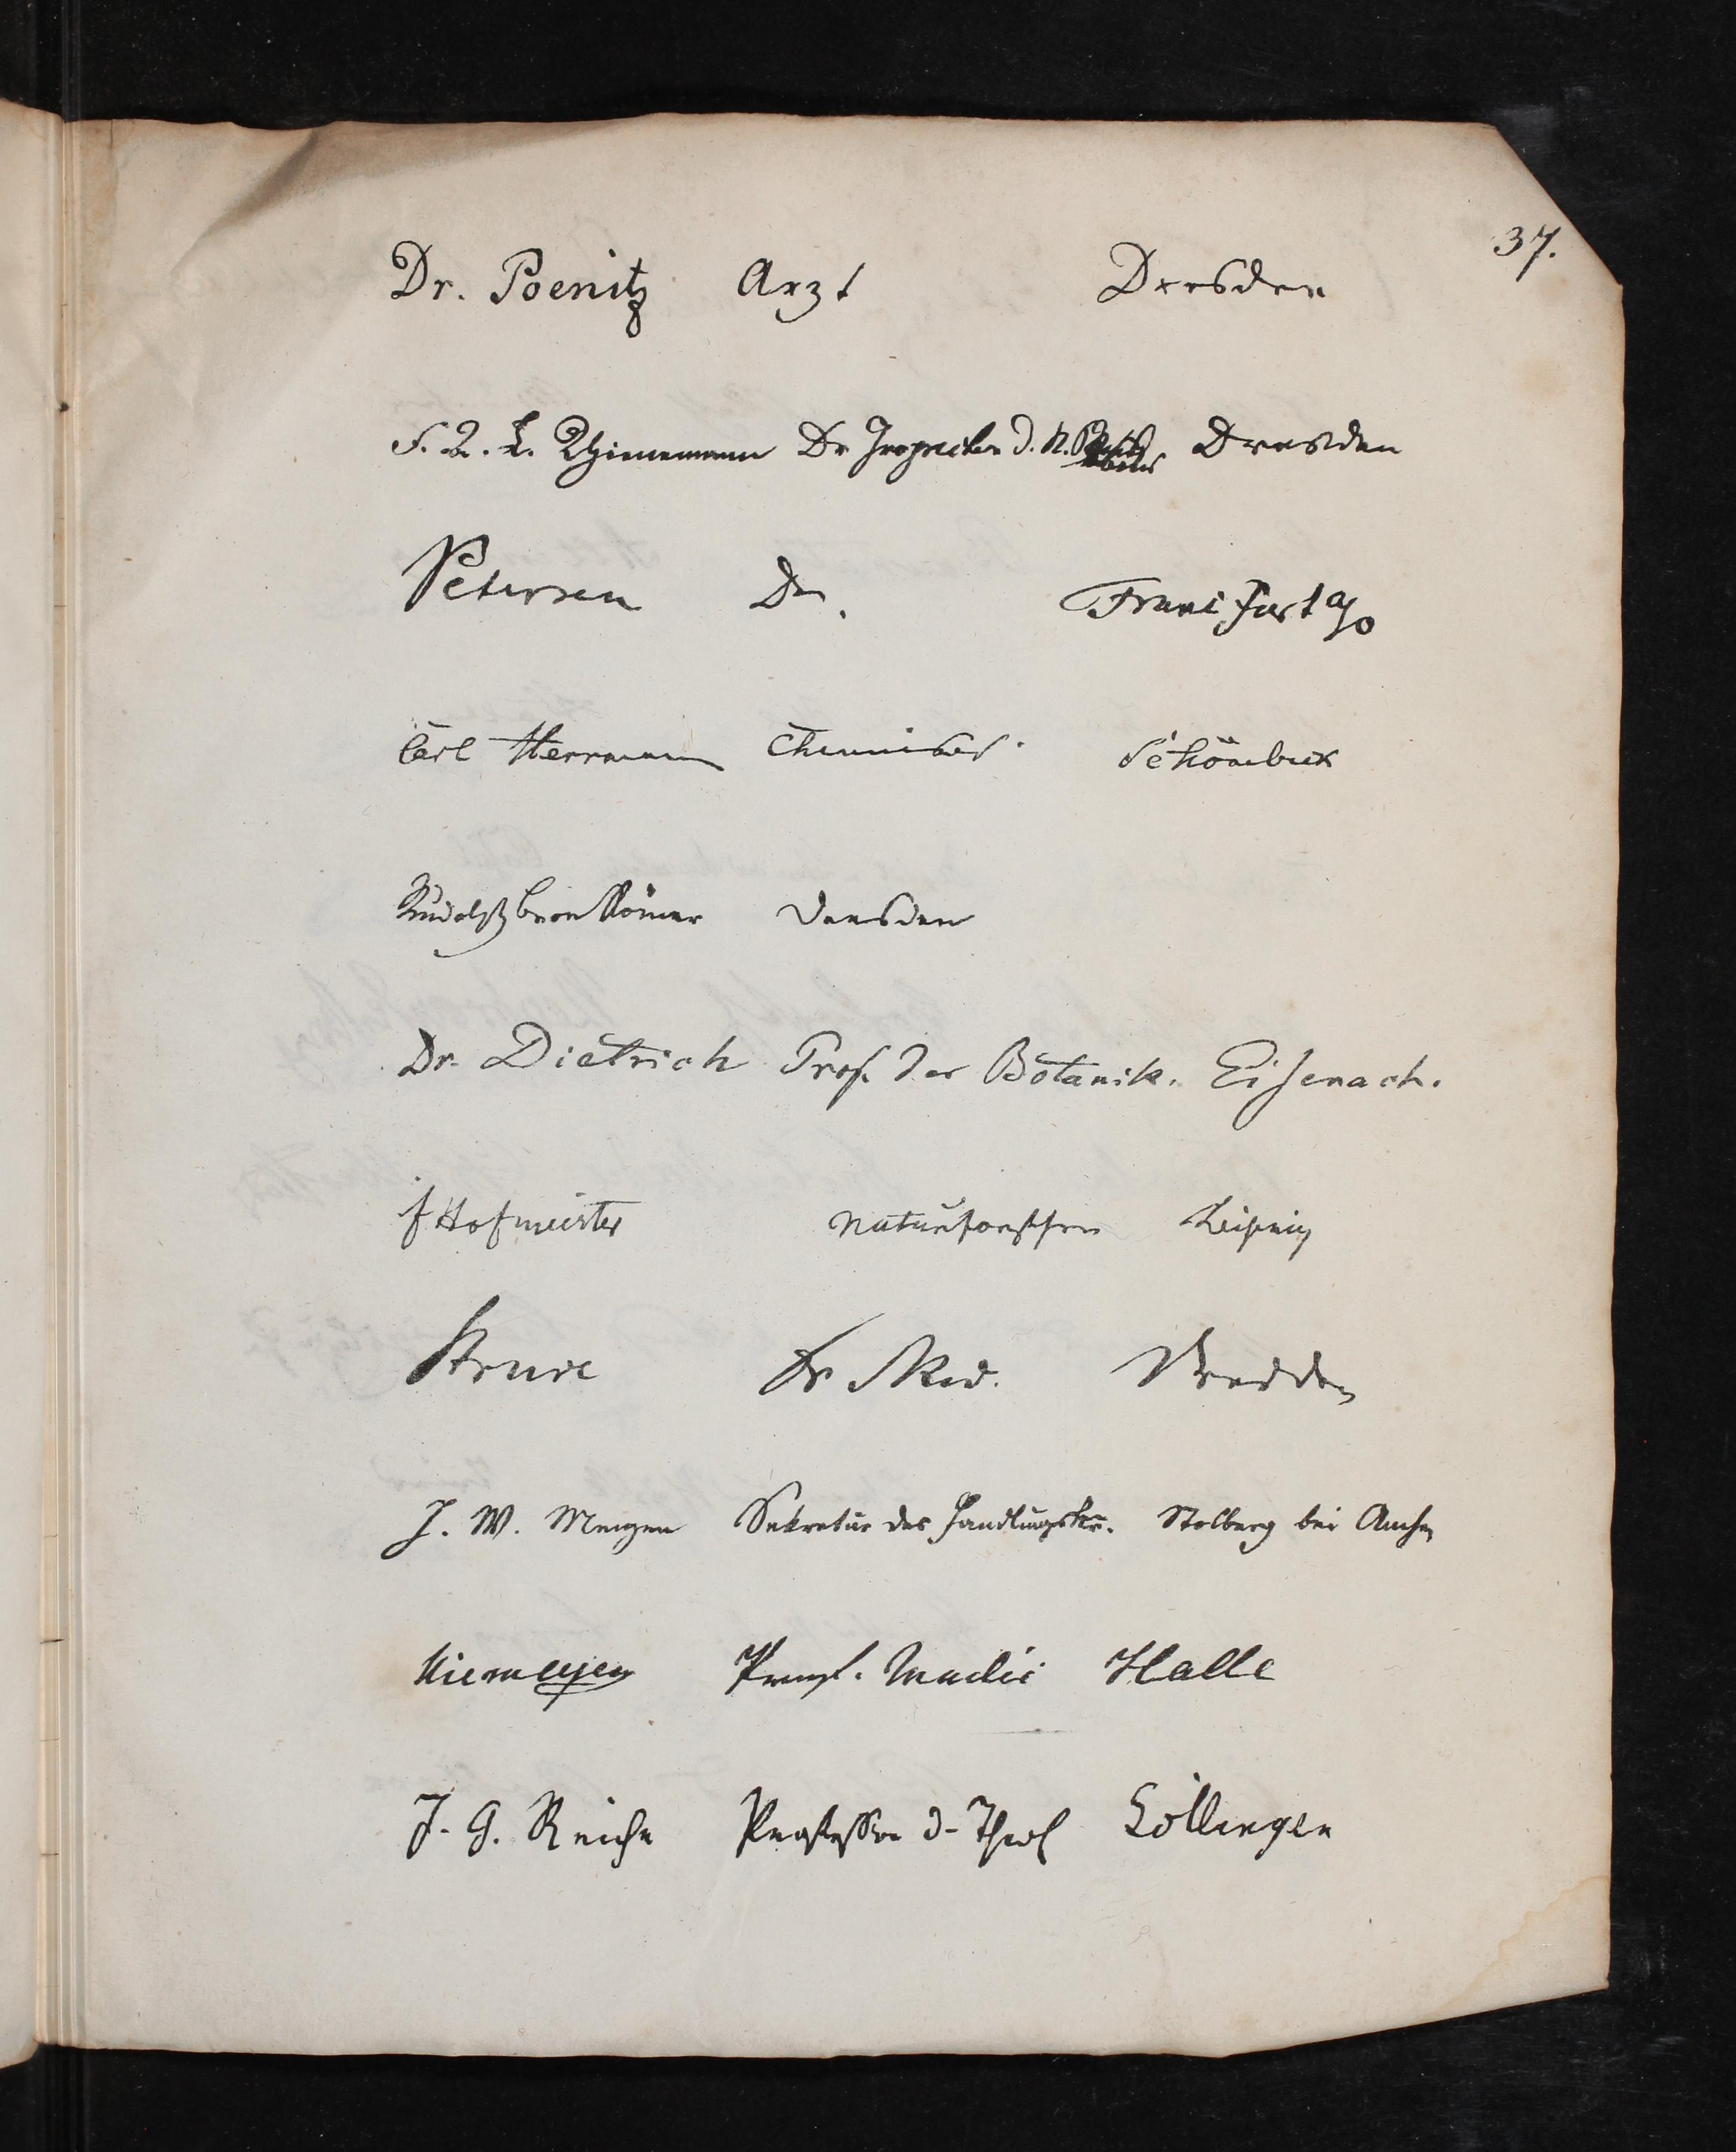 37.
Dr. Poenitz Arzt Dresden
F. A. L. Thienemann Dr Inspector d. N. Dresden
Petersen Dr. Frankfurt a/o
Carl Herrmann Chemiker. Schönebeck
Rudolph Dresden
Dr. Dietrich Prof. der Botanik. Eisenach.
f Hofmeister Naturforscher Leipzig
Struve Dr Med. Dresden
J. W. Meigen Sekretär des Handlungskr. Stolberg bei Aachen
Niemeyer Prof. Medic Halle
J. G. Reiche Professor d. Theol Göttingen